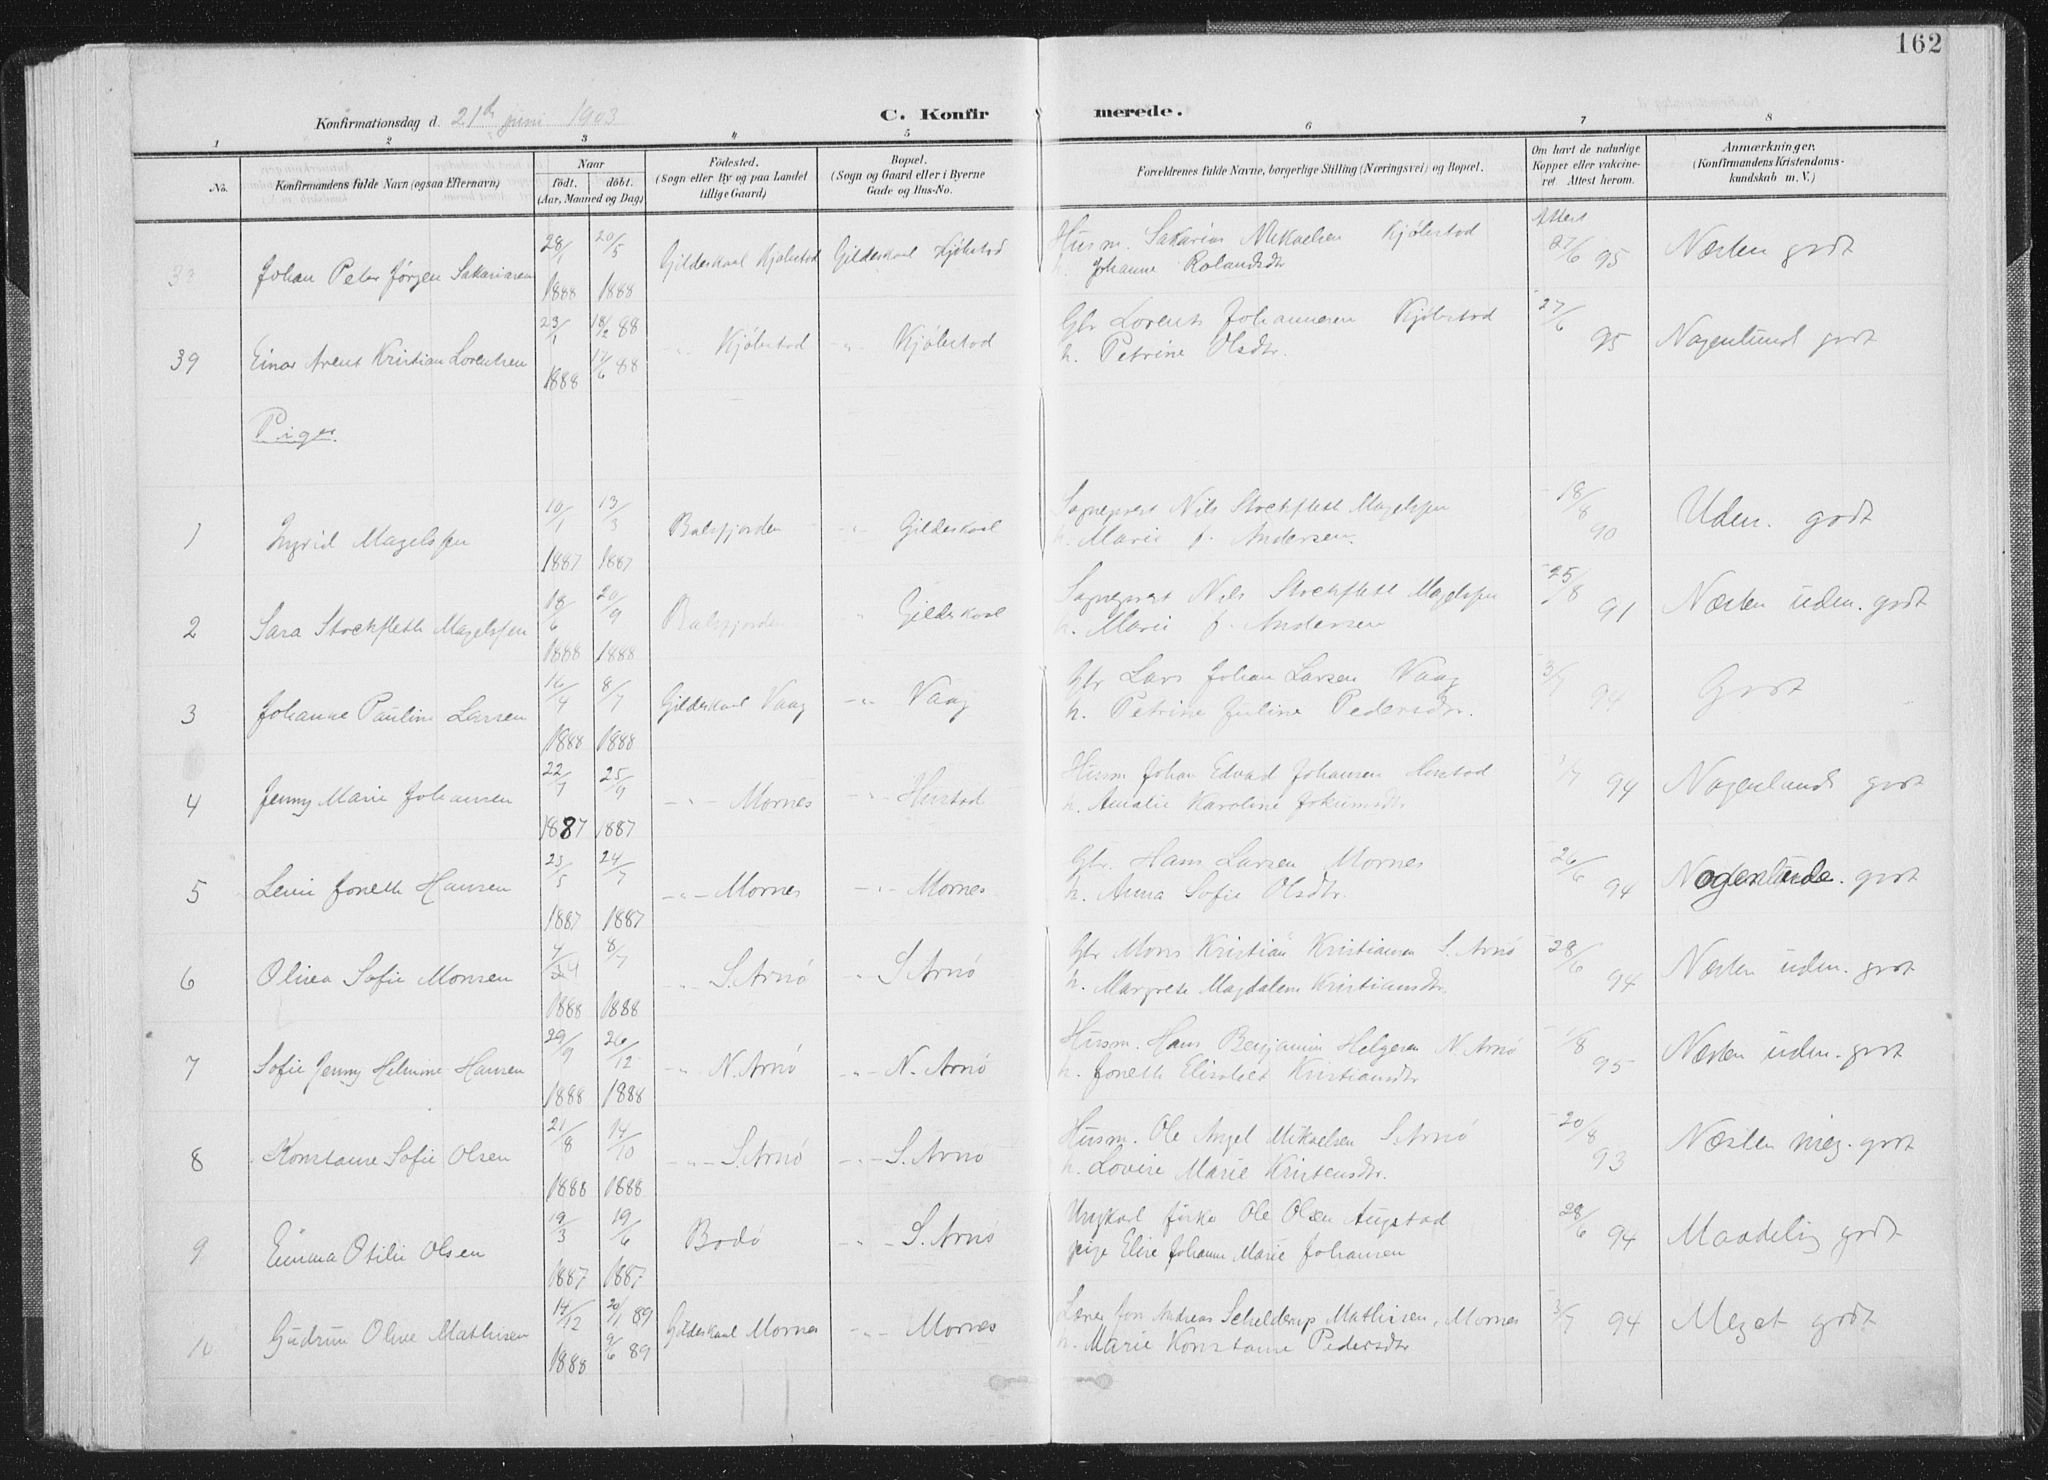 162
Konfirmationsdag d. 21de juni 1903
C. Konfirmerede.
1 2 3 4 5 6 7 8
No.
Konfirmandens fulde Navn (ogsaa Efternavn)
Naar
födt. döbt.
(Aar, Maaned og Dag)
Födested.
(Sogn eller By og paa Landet
tillige Gaard)
Bopæl.
(Sogn og Gaard eller i Byerne
Gade og Hus-No.
Forældrenes fulde Navne, borgerlige Stilling (Næringsvei) og Bopæl.
Om havt de naturlige
Kopper eller vakcine-
ret. Attest herom.
Anmærkninger.
(Konfirmandens Kristendoms-
kundskab m. V.)
Attest
28/1 20/5 Husm. Sakarias Mikaelsen Kjølstad 27/6 95 Næsten godt
Johan Peter Jørgen Sakariasen Gildeskaal Kjølstad Gildeskaal Kjølstad h. Johanne Rolandsdtr
1888 1888
23/1 18/2 88 Gbr Lorents Johannesen Kjølstad 27/6 95
39 Einar Arent Kristian Lorentsen -"- Kjølstad -"- Kjølstad h. Petrine Olsdtr. Nogenlund godt
1888 17/6 88
Piger
10/1 13/3 Sogneprest Nils Stockfleth Magelssen 18/8 90
1 Ingrid Magelssen Balsfjorden -"- Gildeskaal h. Marie f. Andersen. Uden. godt
1887 1887
18/6 20/9 Sogneprest Nils Stockfleth Magelssen 25/8 91
2 Sara Stockfleth Magelssen Balsfjorden " Gildeskaal h. Marie f. Andersen Næsten uden. godt
1888 1888
16/4 8/7 Gbr Lars Johan Larsen Vaag 3/7 94
3 Johanne Pauline Larsen Gildeskaal Vaag -"- Vaag h. Petrine Juline Pedersdtr. Godt
1888 1888
22/7 25/9 Husm Johan Edvard Johansen Hustad 3/7 94
4 Jenny Marie Johansen -"- Mornes -"- Hustad h. Amalie Karoline Jokumsdtr Nogenlunde godt
1887 1887
23/5 24/7 Gbr. Hans Larsen Mornes 26/6 94
5 Lenie Joneth Hansen -"- Mornes -"- Mornes h. Anna Sofie Olsdtr. Nogenlunde. godt
1887 1887
8/7 Gbr Mons Kristian Kristiansen S. Arnö 28/6 94
6 Olivea Sofie Monsen -"- S. Arnö " S Arnö h. Margrete Magdalene Kristiansdtr. Næsten uden. godt
1888 1888
29/9 26/12 Husm. Hans Benjamin Helgesen N. Arnö 1/8 95
7 Sofie Jenny Helmine Hansen -"- N. Arnö -"- N. Arnö h. Joneth Elisabet Kristiansdtr Næsten uden. godt
1888 1888
21/8 14/10 Husm. Ole Angel Mikaelsen S. Arnö 20/8 93
8 Konstanse Sofie Olsen -"- S. Arnö -"- S. Arnö h. Lovise Marie Kristensdtr. Næsten meg. godt
1888 1888
19/3 19/6 Ungkarl fisker Ole Olsen Augstad 28/6 94
9 Emma Otilie Olsen Bodö -"- S. Arnö pige Elise Johanne Marie Johansen Maadelig godt
1887 1887
14/12 20/1 89 Lærer Jon Andreas Schelderup Mathisen, Mornes 3/7 94
10 Gudrun Oline Mathisen Gildeskaal Mornes -"- Mornes h. Marie Konstanse Pedersdtr Meget godt
1888 9/6 89